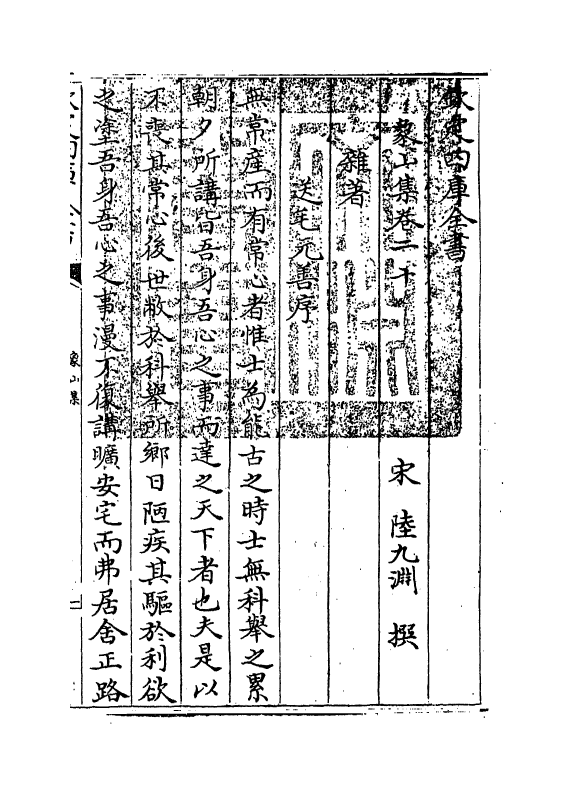 欽定四庫全書
象山集卷二十
宋 陸九淵 撰
雜著
送毛元善序
無常産而有常心者惟士為能古之時士無科舉之累
朝夕所講皆吾身吾心之事而達之天下者也夫是以
不喪其常心後世敝於科舉所鄉日陋疾其驅於利欲
之塗吾身吾心之事漫不復講曠安宅而弗居舍正路
欽定四庫全書
象山集
一